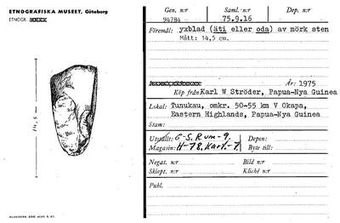 ETNOGRAFISKA MUSEET, Göteborg
ETNOGR.
14,5 cm
Gen. n:r
Saml. n:r
Dep. n:r
94784
75.9.16
Föremål: yxblad (äti eller oda) av mörk sten
Mått: 14,5 cm.
År: 1975
Köp från Karl W Ströder, Papua-Nya Guinea
Lokal: Tunukau, omkr. 50-55 km V Okapa,
Eastern Highlands, Papua-Nya Guinea
Stam:
Uppställt: G-S. Rum-9. Depon:
Magasin: H-78. Kart.-7. Byte:
Negat. n:r
Bild n:r
Skiopt. n:r
Kliché n:r
Publ.